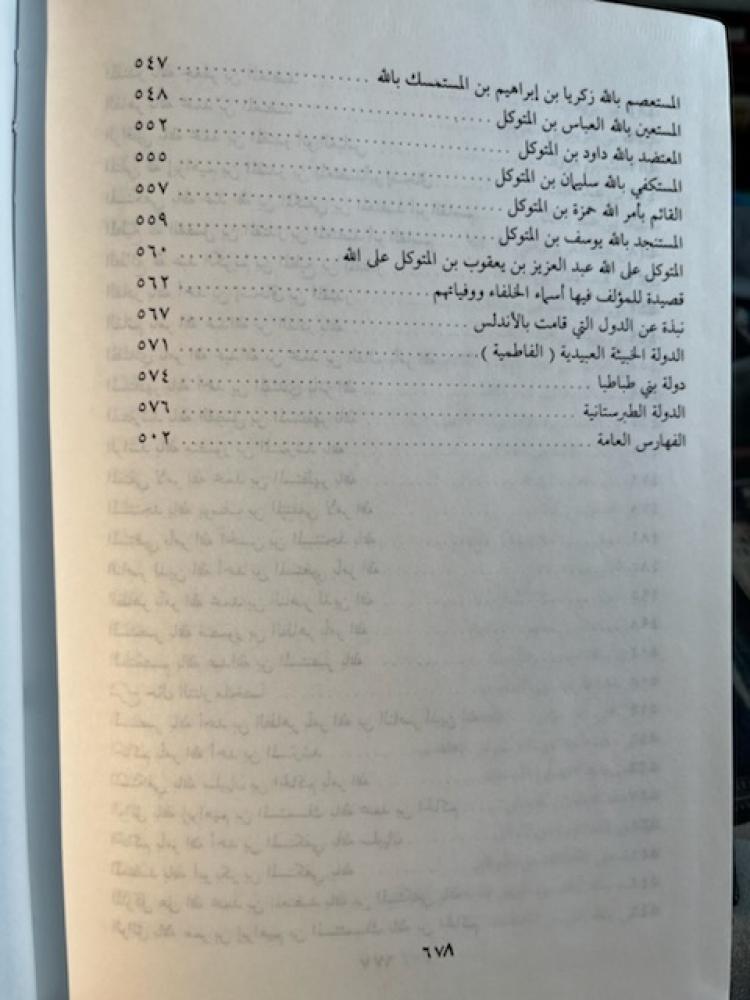 المستعصم بالله زكريا بن إبراهيم بن المستمسك بالله ..................... ٥٤٧
المستعين بالله العباس بن المتوكل ..................... ٥٤٨
المعتضد بالله داود بن المتوكل ..................... ٥٥٢
المستكفي بالله سليمان بن المتوكل ..................... ٥٥٥
القائم بأمر الله حمزة بن المتوكل ..................... ٥٥٧
المستنجد بالله يوسف بن المتوكل ..................... ٥٥٩
المتوكل على الله عبد العزيز بن يعقوب بن المتوكل على الله ..................... ٥٦٠
قصيدة للمؤلف فيها أسماء الخلفاء ووفياتهم ..................... ٥٦٢
نبذة عن الدول التي قامت بالأندلس ..................... ٥٦٧
الدولة الخبيثة العبيدية ( الفاطمية ) ..................... ٥٧١
دولة بني طباطبا ..................... ٥٧٤
الدولة الطبرستانية ..................... ٥٧٦
الفهارس العامة ..................... ٥٠٢
٦٧٨